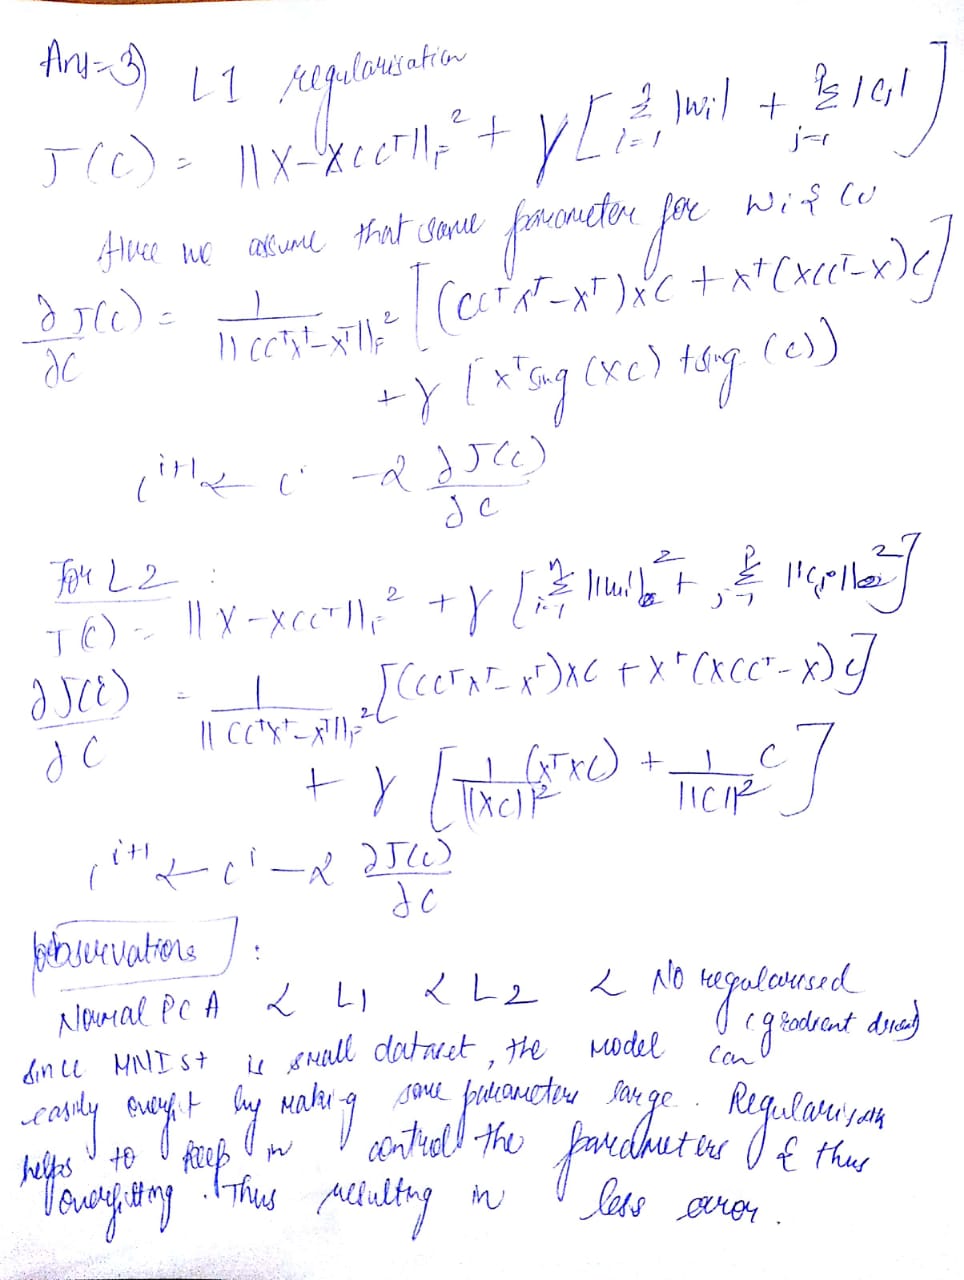 Ans-3) L1 regularisation
J(C) = ||X-XCCᵀ||_F² + γ[ Σ_{i=1}^{n} |wi| + Σ_{j=1}^{p} |Cj| ]
Here we assume that same parameter for wi & Cj
∂J(C)/∂C = 1/||CCᵀXᵀ-Xᵀ||_F² [(CCᵀXᵀ-Xᵀ)XC + Xᵀ(XCCᵀ-X)C]
+γ [Xᵀ sing (XC) + sing (C))
C^{i+1} ← C^i - α ∂J(C)/∂C
For L2 :
J(C) = ||X-XCCᵀ||_F² + γ [ Σ_{i=1}^{n} ||wi||² + Σ_{j=1}^{p} ||Cj||² ]
∂J(C)/∂C = 1/||CCᵀXᵀ-Xᵀ||_F² [(CCᵀXᵀ-Xᵀ)XC + Xᵀ(XCCᵀ-X)C]
+ γ [ 1/||XC||² (XᵀXC) + 1/||C||² C ]
C^{i+1} ← C^i - α ∂J(C)/∂C
Observations :
Normal PCA < L1 < L2 < No regularised
(gradient descent)
Since MNIST is small dataset, the model can
easily overfit by making some parameters large. Regularisation
helps to keep in control the parameters & thus
overfitting. Thus resulting in less error.